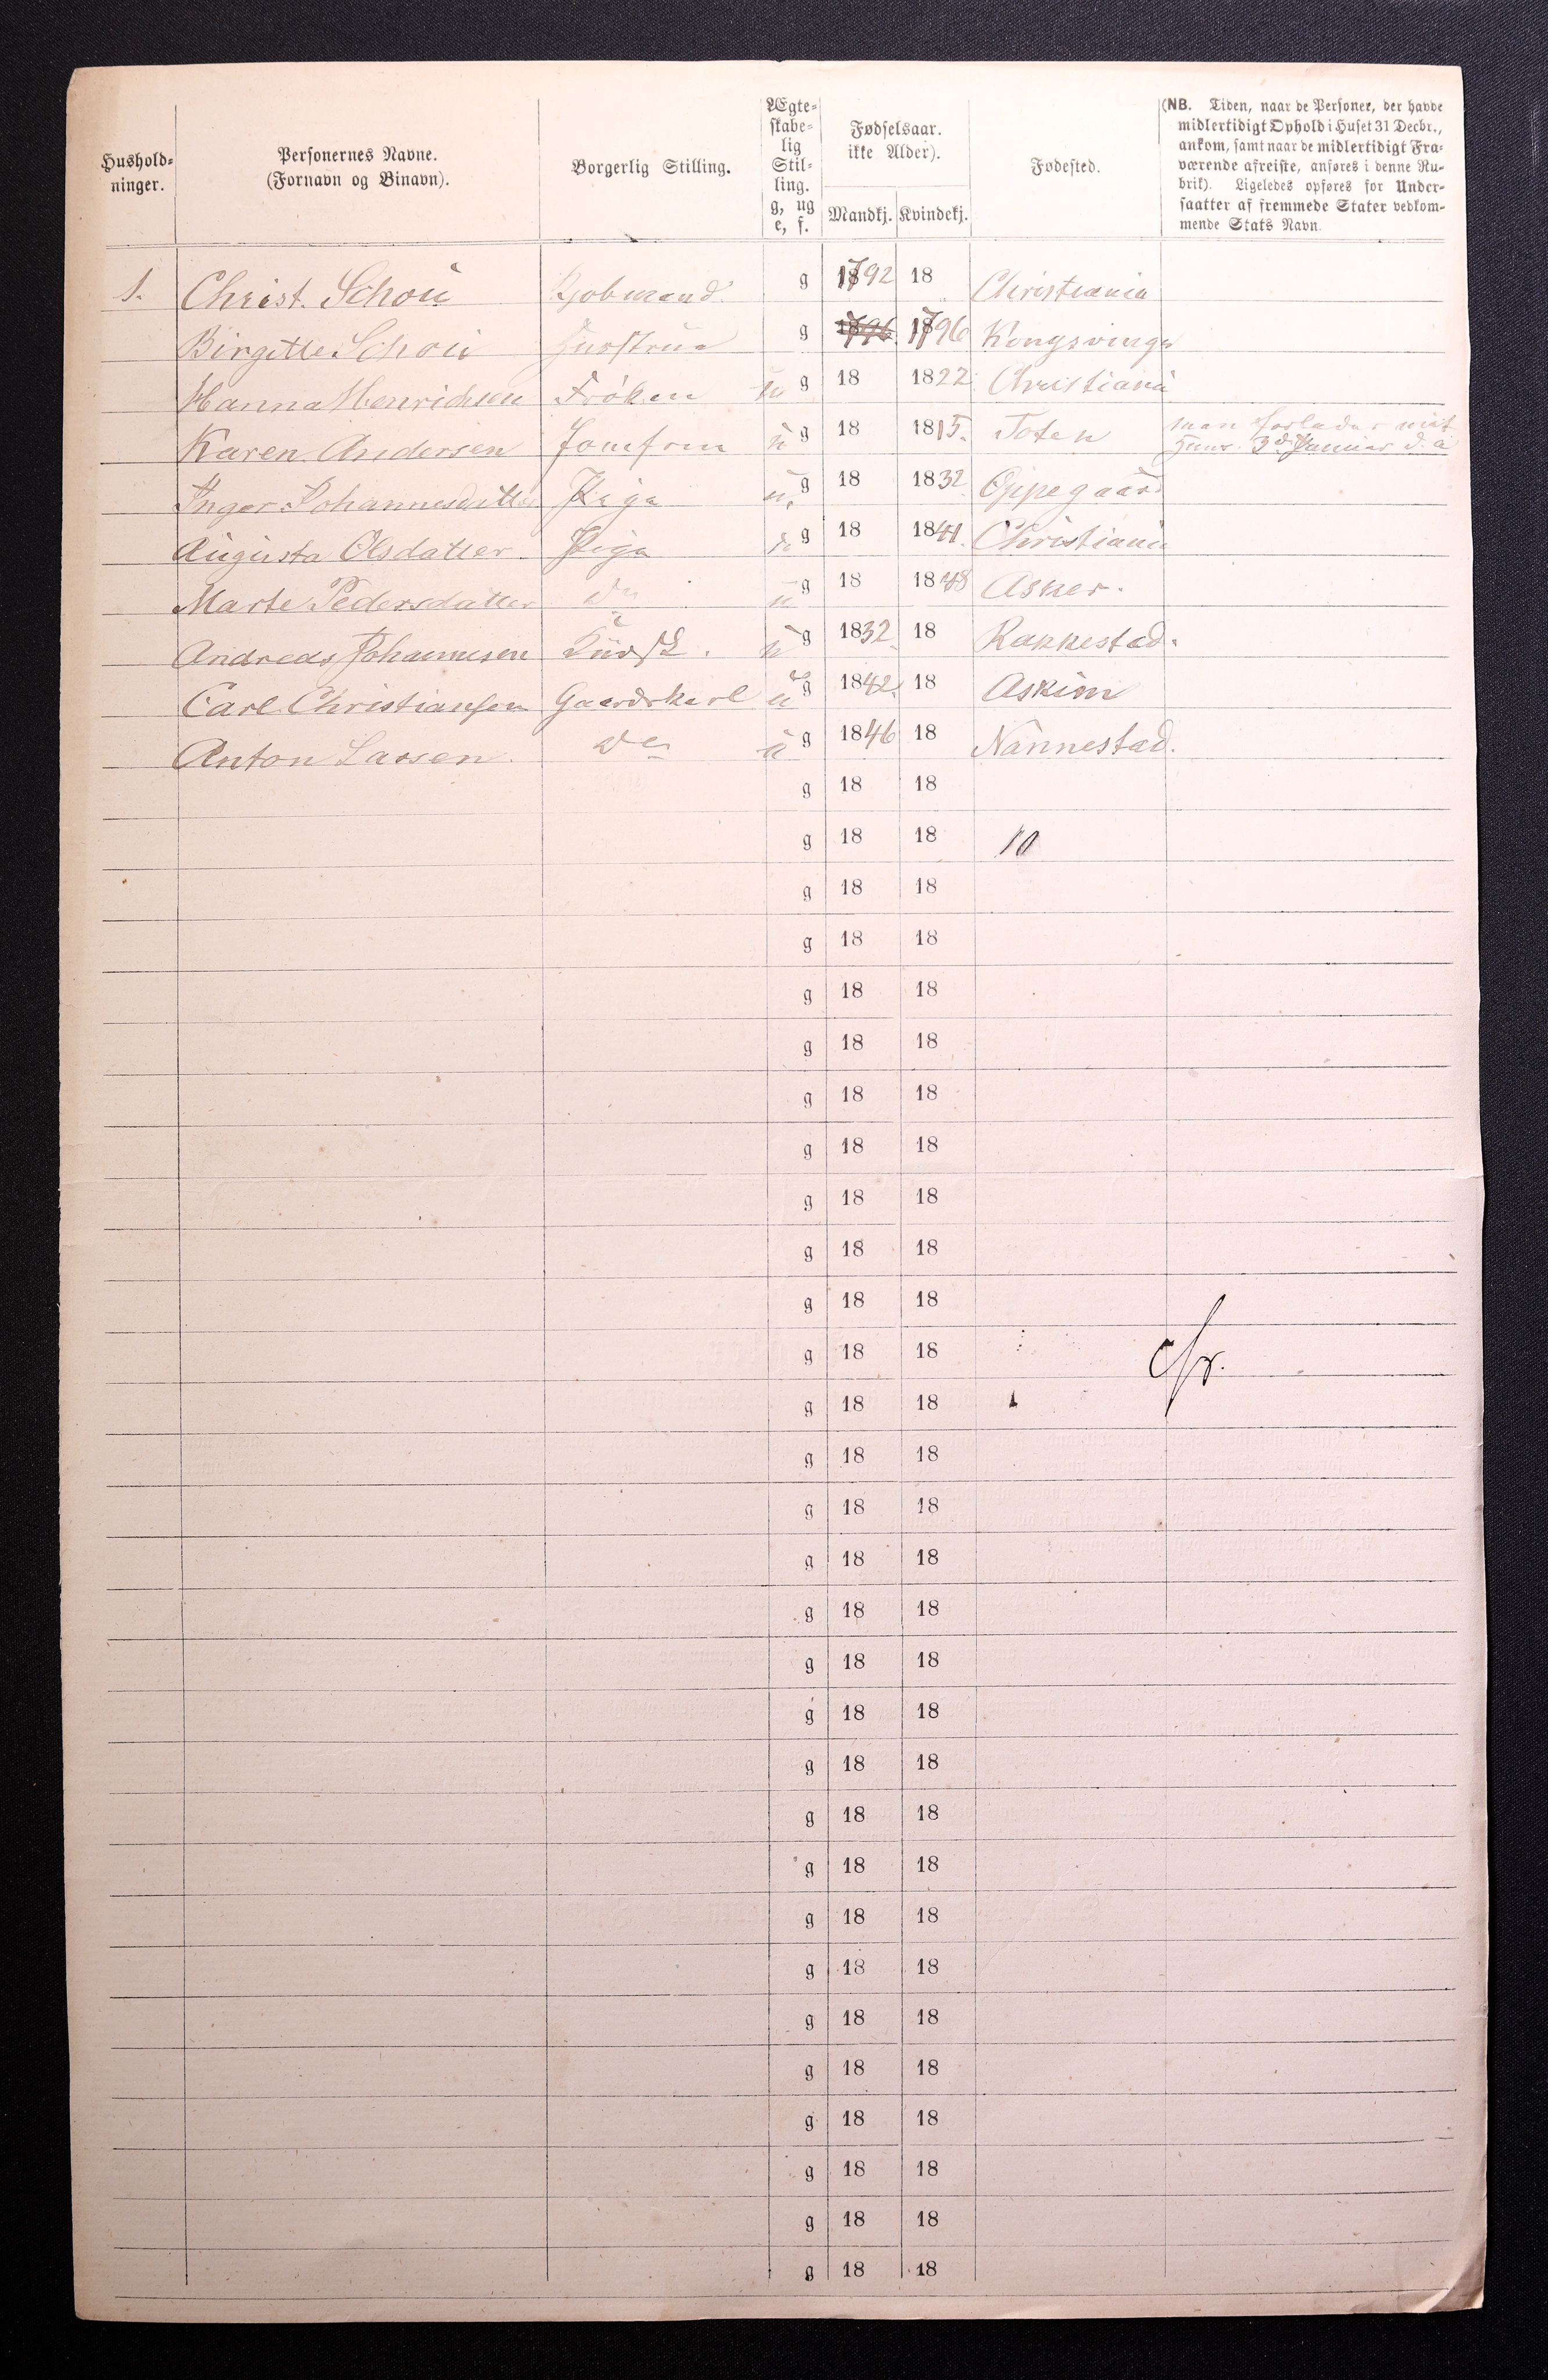 Hushold-
ninger.
Personernes Navne.
(Fornavn og Binavn).
Borgerlig Stilling.
Ægte-
skabe-
lig
Stil-
ling.
g, ug
e, f.
Fødselsaar.
ikke Alder).
Mandkj. Kvindekj.
Fødested.
(NB. Tiden, naar de Personer, der havde
midlertidigt Ophold i Huset 31 Decbr.,
ankom, samt naar de midlertidigt Fra-
værende afreiste, anføres i denne Ru-
brik). Ligeledes opføres for Under-
saatter af fremmede Stater vedkom-
mende Stats Navn.
1. Christ. Schou Kjøbmand. g 1792 18 Christiania
Birgitte Schou Huustrue g 1796 1796 Kongsvinger
Hanna Henrichsen Frøken u g 18 1822 Christiania
Karen Andersen Jomfrue u g 18 1815. Toten man forlader mit
Huus. 3d Januar d. a
Inger Johannesdatter Pige u. g 18 1832 Oppegaard
Augusta Olsdatter Pige u g 18 1841. Christiania
Marte Pedersdatter do u g 18 1848 Asker.
Andreas Johannesen Kudsk. u g 1832 18 Rakkestad.
Carl Christiansen Gaardskarl u g 1842. 18 Askim
Anton Lassen. do u g 1846 18 Nannestad.
g 18 18
g 18 18 10
g 18 18
g 18 18
g 18 18
g 18 18
g 18 18
g 18 18
g 18 18
g 18 18
g 18 18
g 18 18
g 18 18
g 18 18
g 18 18
g 18 18
g 18 18
g 18 18
g 18 18
g 18 18
g 18 18
g 18 18
g 18 18
g 18 18
g 18 18
g 18 18
g 18 18
g 18 18
g 18 18
g 18 18